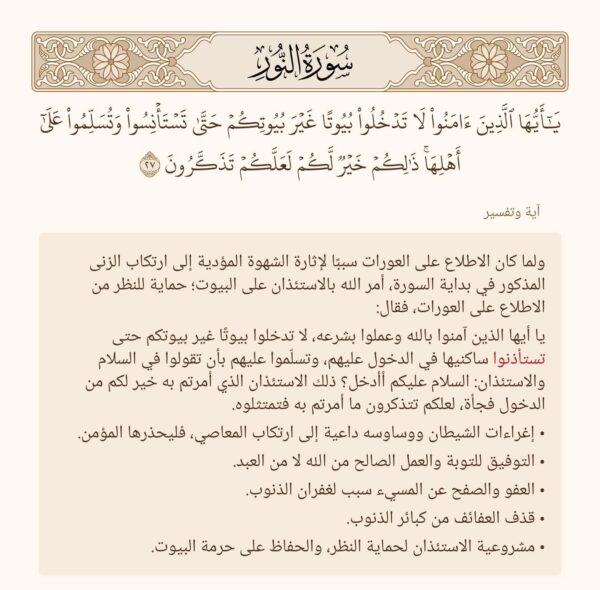 سُورَةُ النُّورِ
يَـٰٓأَيُّهَا ٱلَّذِينَ ءَامَنُوا۟ لَا تَدۡخُلُوا۟ بُيُوتًا غَيۡرَ بُيُوتِكُمۡ حَتَّىٰ تَسۡتَأۡنِسُوا۟ وَتُسَلِّمُوا۟ عَلَىٰٓ
أَهۡلِهَاۚ ذَٰلِكُمۡ خَيۡرٞ لَّكُمۡ لَعَلَّكُمۡ تَذَكَّرُونَ ٢٧
آية وتفسير
ولما كان الاطلاع على العورات سببًا لإثارة الشهوة المؤدية إلى ارتكاب الزنى
المذكور في بداية السورة، أمر الله بالاستئذان على البيوت؛ حماية للنظر من
الاطلاع على العورات، فقال:
يا أيها الذين آمنوا بالله وعملوا بشرعه، لا تدخلوا بيوتًا غير بيوتكم حتى
تستأذنوا ساكنيها في الدخول عليهم، وتسلّموا عليهم بأن تقولوا في السلام
والاستئذان: السلام عليكم أأدخل؟ ذلك الاستئذان الذي أمرتم به خير لكم من
الدخول فجأة، لعلكم تتذكرون ما أمرتم به فتمتثلوه.
• إغراءات الشيطان ووساوسه داعية إلى ارتكاب المعاصي، فليحذرها المؤمن.
• التوفيق للتوبة والعمل الصالح من الله لا من العبد.
• العفو والصفح عن المسيء سبب لغفران الذنوب.
• قذف العفائف من كبائر الذنوب.
• مشروعية الاستئذان لحماية النظر، والحفاظ على حرمة البيوت.